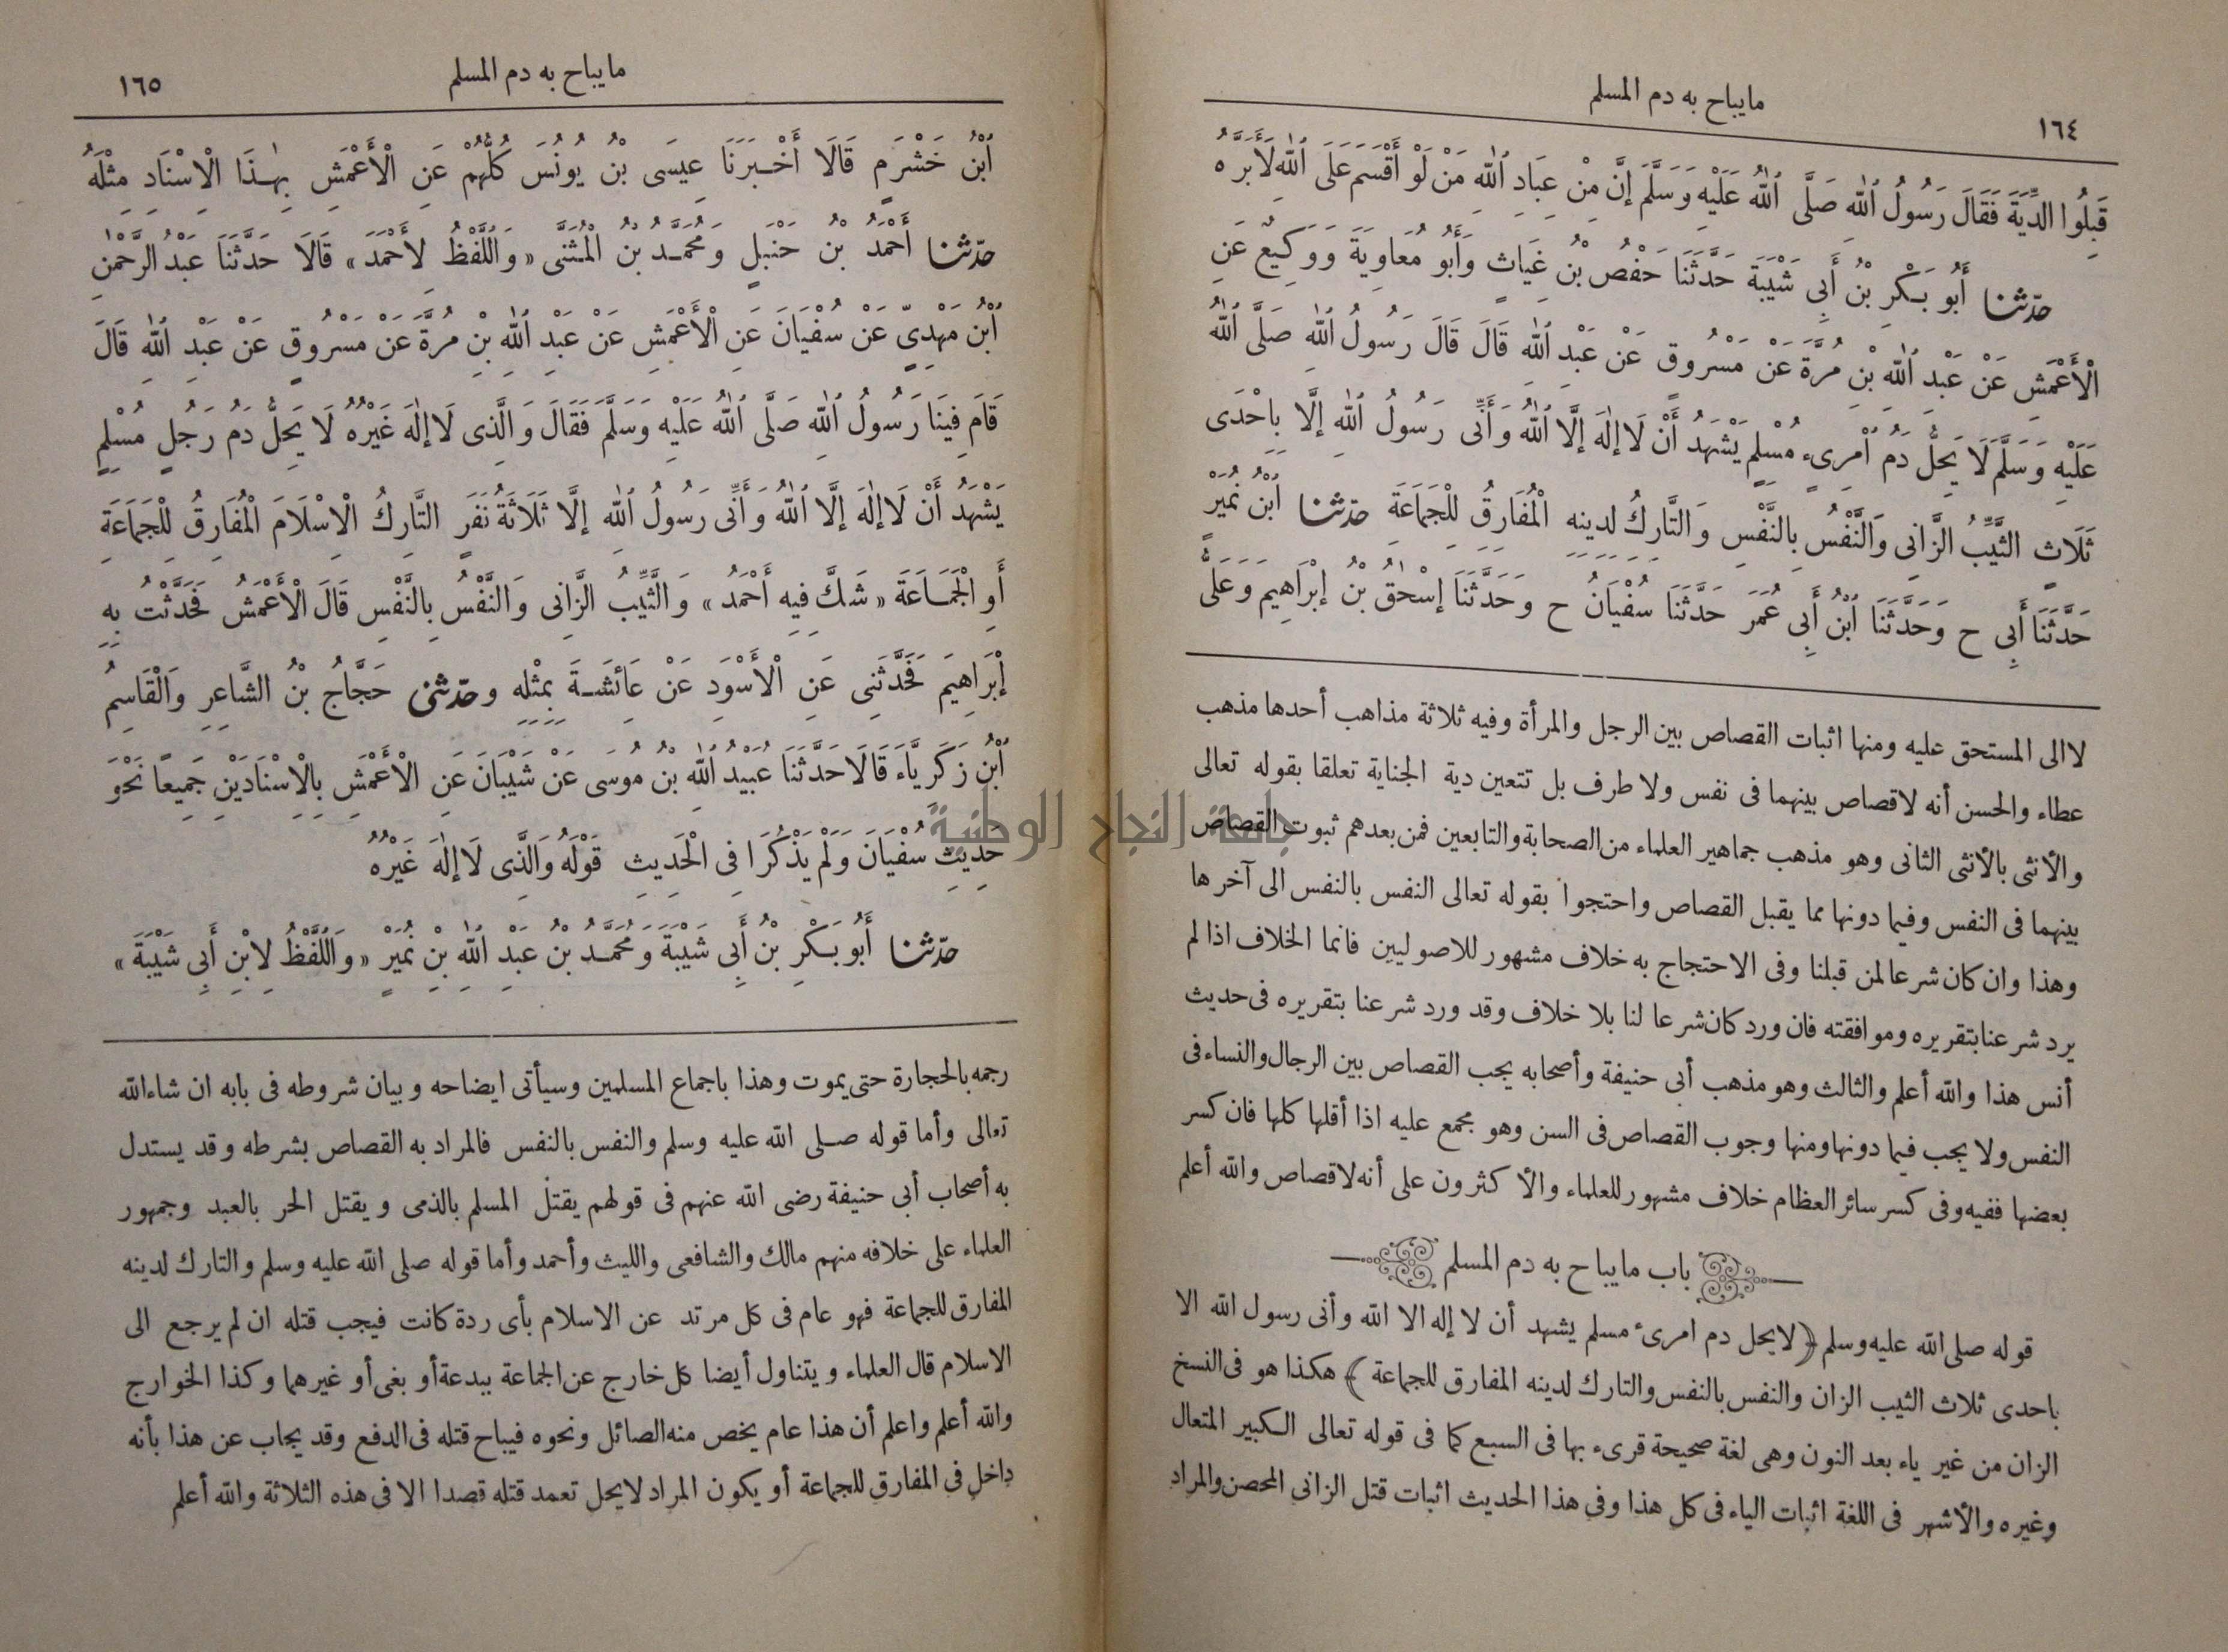 ١٦٤
مايباح به دم المسلم
قَبِلُوا الدِّيَةَ فَقَالَ رَسُولُ ٱللهِ صَلَّى ٱللهُ عَلَيْهِ وَسَلَّمَ إِنَّ مِنْ عِبَادِ ٱللهِ مَنْ لَوْ أَقْسَمَ عَلَى ٱللهِ لَأَبَرَّهُ
حدّثنا أَبُو بَكْرِ بْنُ أَبِي شَيْبَةَ حَدَّثَنَا حَفْصُ بْنُ غِيَاثٍ وَأَبُو مُعَاوِيَةَ وَوَكِيعٌ عَنِ
الْأَعْمَشِ عَنْ عَبْدِ ٱللهِ بْنِ مُرَّةَ عَنْ مَسْرُوقٍ عَنْ عَبْدِ ٱللهِ قَالَ قَالَ رَسُولُ ٱللهِ صَلَّى ٱللهُ
عَلَيْهِ وَسَلَّمَ لَا يَحِلُّ دَمُ ٱمْرِىءٍ مُسْلِمٍ يَشْهَدُ أَنْ لَا إِلٰهَ إِلَّا ٱللهُ وَأَنِّى رَسُولُ ٱللهِ إِلَّا بِاِحْدَى
ثَلَاثٍ الثَّيِّبُ الزَّانِى وَالنَّفْسُ بِالنَّفْسِ وَالتَّارِكُ لِدِينِهِ الْمُفَارِقُ لِلْجَمَاعَةِ حدّثنا ٱبْنُ نُمَيْرٍ
حَدَّثَنَا أَبِى ح وَحَدَّثَنَا ٱبْنُ أَبِي عُمَرَ حَدَّثَنَا سُفْيَانُ ح وَحَدَّثَنَا إِسْحٰقُ بْنُ إِبْرَاهِيمَ وَعَلِىُّ
لا الى المستحق عليه ومنها اثبات القصاص بين الرجل والمرأة وفيه ثلاثة مذاهب أحدها مذهب
عطاء والحسن أنه لاقصاص بينهما فى نفس ولا طرف بل تتعين دية الجناية تعلقا بقوله تعالى
والأنثى بالأنثى الثانى وهو مذهب جماهير العلماء من الصحابة والتابعين فمن بعدهم ثبوت القصاص
بينهما فى النفس وفيما دونها مما يقبل القصاص واحتجوا بقوله تعالى النفس بالنفس الى آخرها
وهذا وان كان شرعا لمن قبلنا وفى الاحتجاج به خلاف مشهور للاصوليين فانما الخلاف اذا لم
يرد شرعنا بتقريره وموافقته فان ورد كان شرعا لنا بلا خلاف وقد ورد شرعنا بتقريره فى حديث
أنس هذا والله أعلم والثالث وهو مذهب أبى حنيفة وأصحابه يجب القصاص بين الرجال والنساء فى
النفس ولا يجب فيما دونها ومنها وجوب القصاص فى السن وهو مجمع عليه اذا أقلها كلها فان كسر
بعضها ففيه وفى كسر سائر العظام خلاف مشهور للعلماء والأكثرون على أنه لاقصاص والله أعلم
باب مايباح به دم المسلم
قوله صلى الله عليه وسلم ﴿لايحل دم امرىء مسلم يشهد أن لا إله الا الله وأنى رسول الله الا
باحدى ثلاث الثيب الزان والنفس بالنفس والتارك لدينه المفارق للجماعة﴾ هكذا هو فى النسخ
الزان من غير ياء بعد النون وهى لغة صحيحة قرىء بها فى السبع كما فى قوله تعالى الكبير المتعال
وغيره والأشهر فى اللغة اثبات الياء فى كل هذا وفى هذا الحديث اثبات قتل الزانى المحصن والمراد
مايباح به دم المسلم
١٦٥
ٱبْنُ خَشْرَمٍ قَالَا أَخْبَرَنَا عِيسَى بْنُ يُونُسَ كُلُّهُمْ عَنِ الْأَعْمَشِ بِهٰذَا الْاِسْنَادِ مِثْلَهُ
حدّثنا أَحْمَدُ بْنُ حَنْبَلٍ وَمُحَمَّدُ بْنُ الْمُثَنَّى «وَاللَّفْظُ لِأَحْمَدَ» قَالَا حَدَّثَنَا عَبْدُ الرَّحْمٰنِ
ٱبْنُ مَهْدِىٍّ عَنْ سُفْيَانَ عَنِ الْأَعْمَشِ عَنْ عَبْدِ ٱللهِ بْنِ مُرَّةَ عَنْ مَسْرُوقٍ عَنْ عَبْدِ ٱللهِ قَالَ
قَامَ فِينَا رَسُولُ ٱللهِ صَلَّى ٱللهُ عَلَيْهِ وَسَلَّمَ فَقَالَ وَالَّذِى لَا إِلٰهَ غَيْرُهُ لَا يَحِلُّ دَمُ رَجُلٍ مُسْلِمٍ
يَشْهَدُ أَنْ لَا إِلٰهَ إِلَّا ٱللهُ وَأَنِّى رَسُولُ ٱللهِ إِلَّا ثَلَاثَةُ نَفَرٍ التَّارِكُ الْاِسْلَامَ الْمُفَارِقُ لِلْجَمَاعَةِ
أَوِ الْجَمَاعَةَ «شَكَّ فِيهِ أَحْمَدُ» وَالثَّيِّبُ الزَّانِى وَالنَّفْسُ بِالنَّفْسِ قَالَ الْأَعْمَشُ فَحَدَّثْتُ بِهِ
إِبْرَاهِيمَ فَحَدَّثَنِى عَنِ الْأَسْوَدِ عَنْ عَائِشَةَ بِمِثْلِهِ وحدّثنى حَجَّاجُ بْنُ الشَّاعِرِ وَالْقَاسِمُ
ٱبْنُ زَكَرِيَّاءَ قَالَا حَدَّثَنَا عُبَيْدُ ٱللهِ بْنُ مُوسَى عَنْ شَيْبَانَ عَنِ الْأَعْمَشِ بِالْاِسْنَادَيْنِ جَمِيعًا نَحْوَ
حَدِيثِ سُفْيَانَ وَلَمْ يَذْكُرَا فِى الْحَدِيثِ قَوْلَهُ وَالَّذِى لَا إِلٰهَ غَيْرُهُ
حدّثنا أَبُو بَكْرِ بْنُ أَبِي شَيْبَةَ وَمُحَمَّدُ بْنُ عَبْدِ ٱللهِ بْنِ نُمَيْرٍ «وَاللَّفْظُ لِابْنِ أَبِى شَيْبَةَ»
رجمه بالحجارة حتى يموت وهذا باجماع المسلمين وسيأتى ايضاحه وبيان شروطه فى بابه ان شاء الله
تعالى وأما قوله صلى الله عليه وسلم والنفس بالنفس فالمراد به القصاص بشرطه وقد يستدل
به أصحاب أبى حنيفة رضى الله عنهم فى قولهم يقتل المسلم بالذمى ويقتل الحر بالعبد وجمهور
العلماء على خلافه منهم مالك والشافعى والليث وأحمد وأما قوله صلى الله عليه وسلم والتارك لدينه
المفارق للجماعة فهو عام فى كل مرتد عن الاسلام بأى ردة كانت فيجب قتله ان لم يرجع الى
الاسلام قال العلماء ويتناول أيضا كل خارج عن الجماعة ببدعة أو بغى أو غيرهما وكذا الخوارج
والله أعلم واعلم أن هذا عام يخص منه الصائل ونحوه فيباح قتله فى الدفع وقد يجاب عن هذا بأنه
داخل فى المفارق للجماعة أو يكون المراد لايحل تعمد قتله قصدا الا فى هذه الثلاثة والله أعلم
جامعة النجاح الوطنية